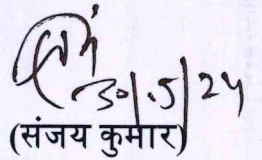 30/.5/24
(संजय कुमार)